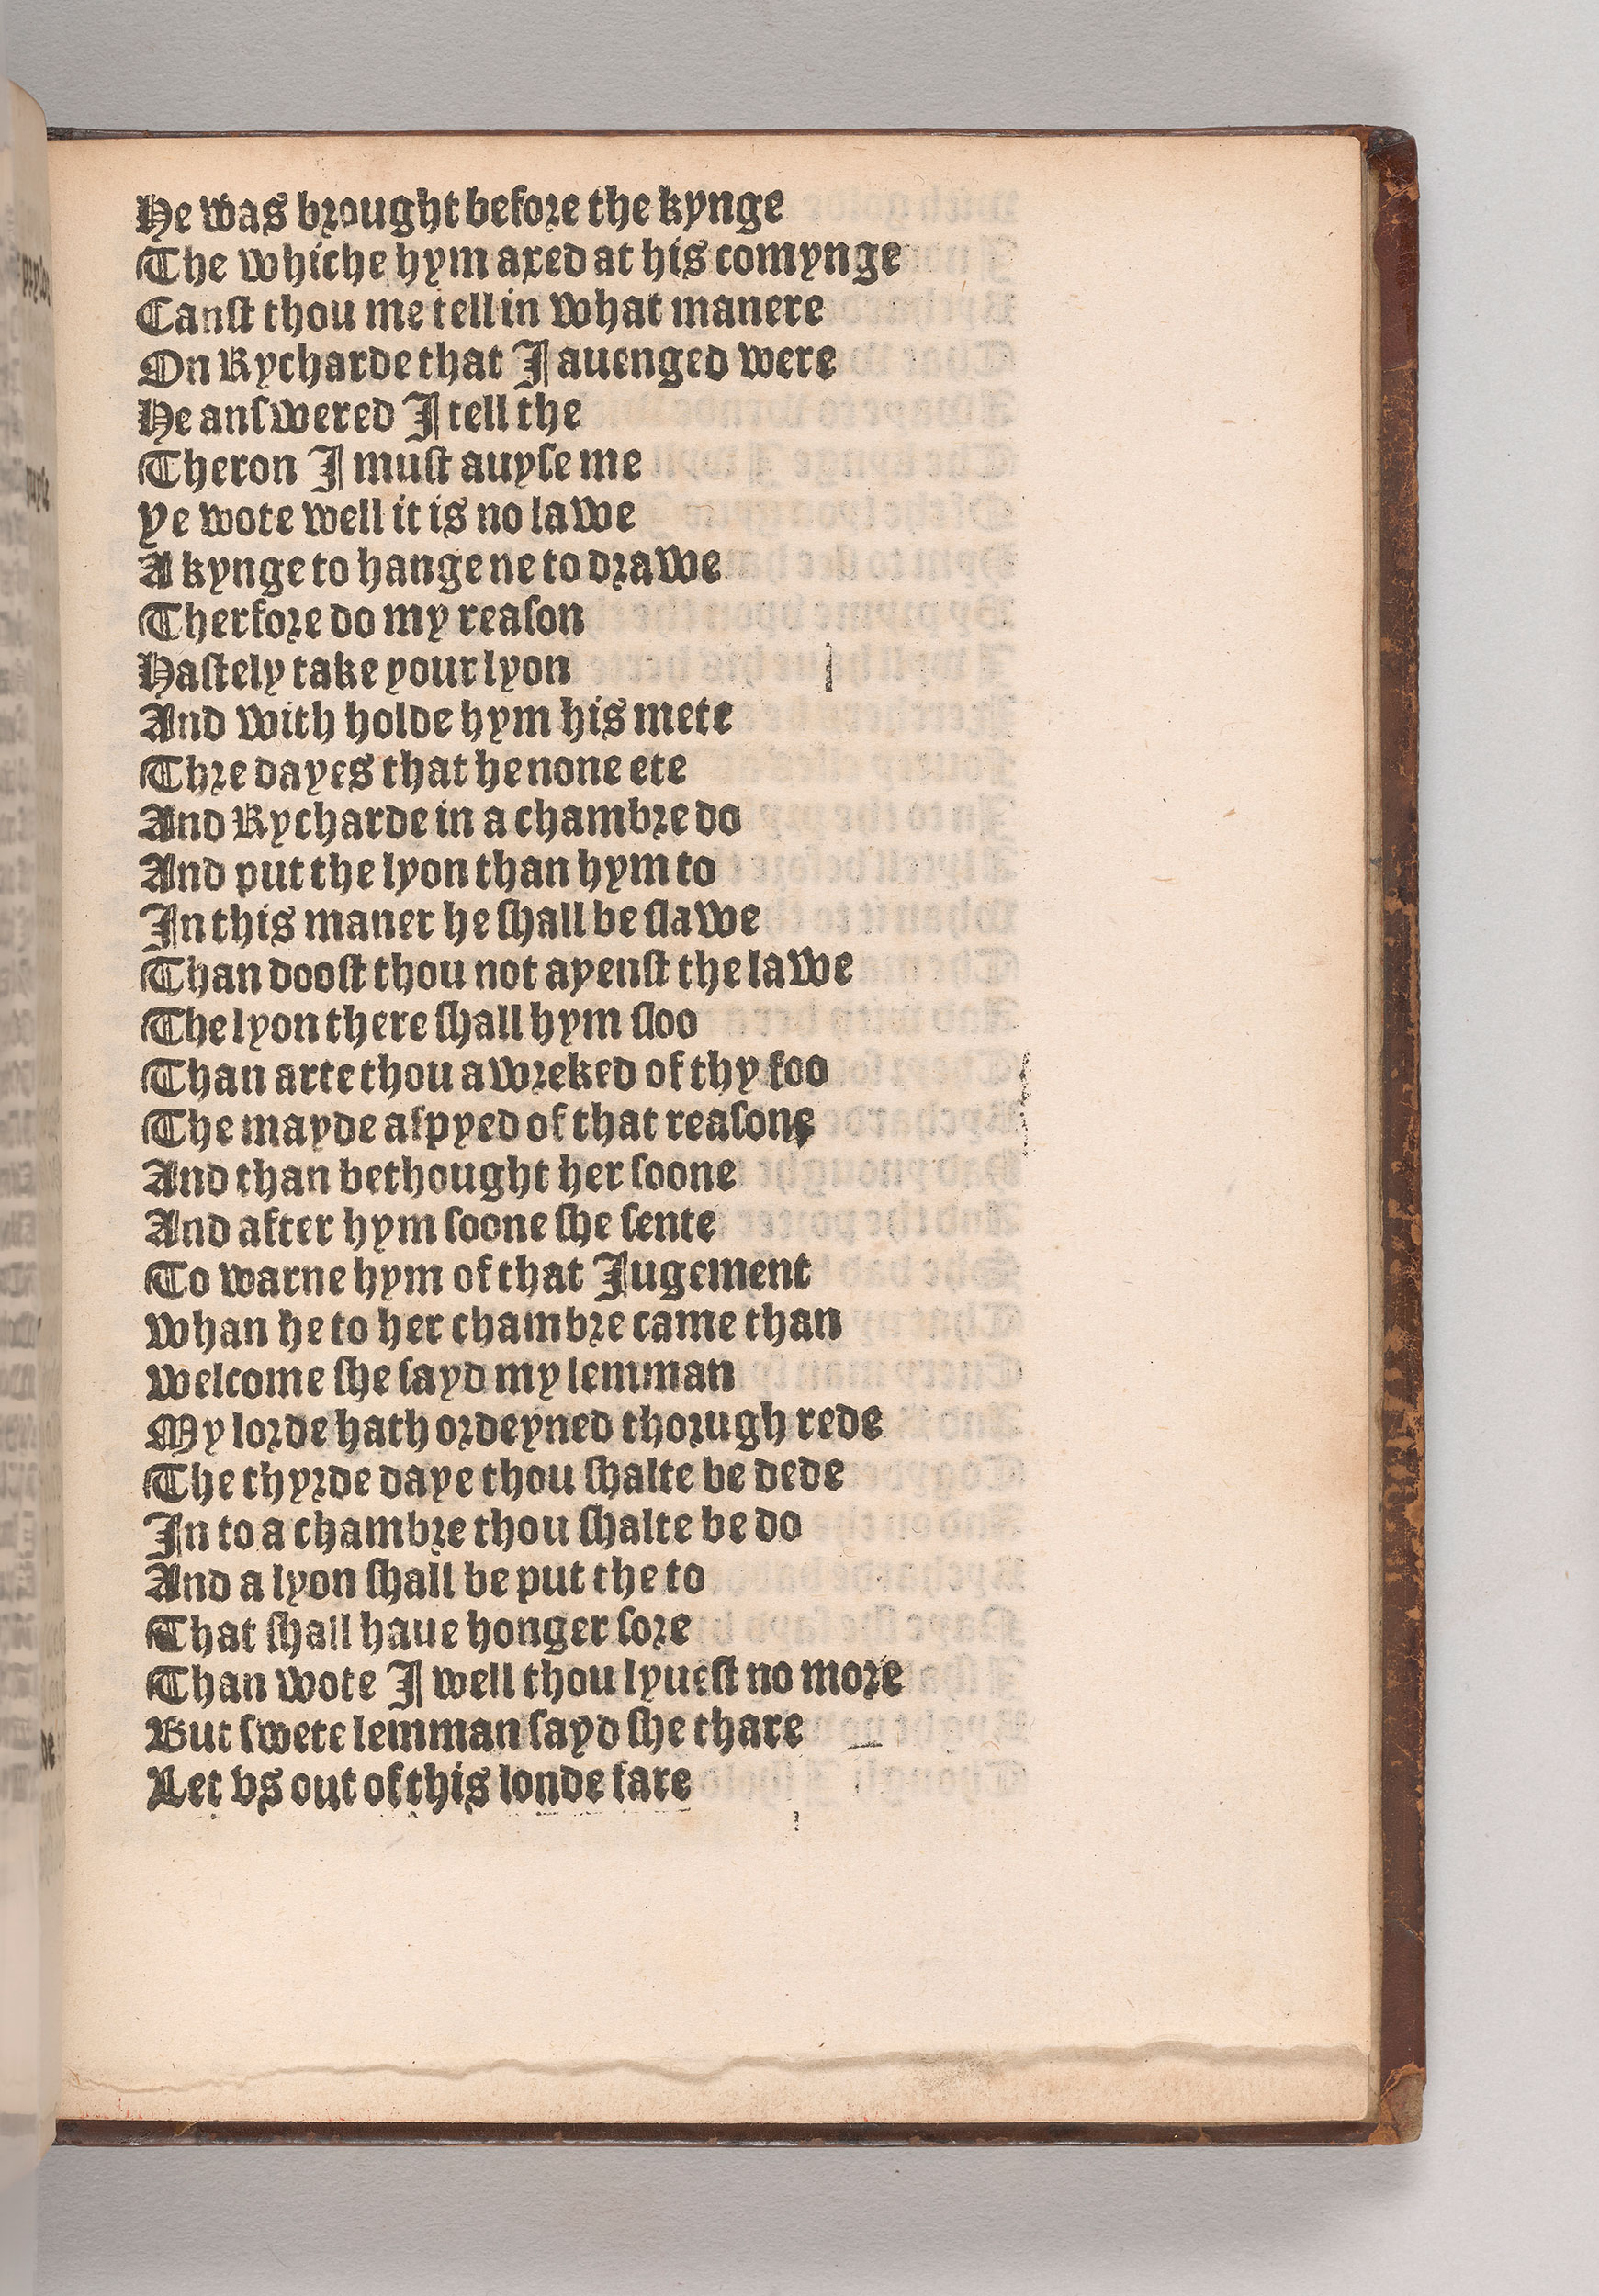 He was brought before the kynge
The whiche hym axed at his comynge
Canst thou me tell in what manere
On Rycharde that I auenged were
He answered I tell the
Theron I must auyse me
ye wote well it is no lawe
A kynge to hange ne to drawe
Therfore do my reason
Hastely take your lyon
And with holde hym his mete
Thre dayes that he none ete
And Rycharde in a chambre do
And put the lyon than hym to
In this maner he shall be slawe
Than doost thou not ayenst the lawe
The lyon there shall hym sloo
Than arte thou awreked of thy foo
The mayde aspyed of that reasone
And than bethought her soone
And after hym soone she sente
To warne hym of that Jugement
whan he to her chambre came than
welcome she sayd my lemman
My lorde hath ordeyned thorugh rede
The thyrde daye thou shalte be dede
In to a chambre thou shalte be do
And a lyon shall be put the to
That shall haue honger sore
Than wote I well thou lyuest no more
But swete lemman sayd she thare
Let vs out of this londe fare